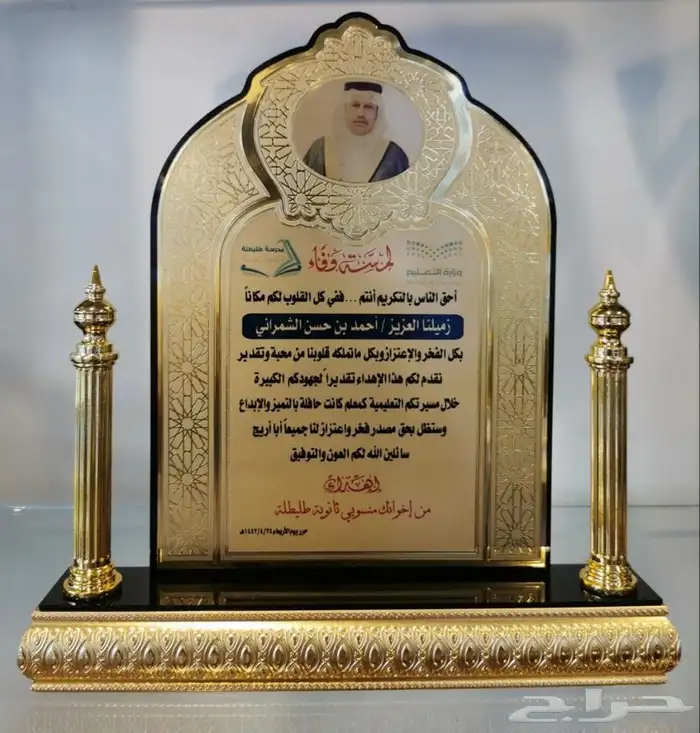 مدرسة طليطلة
لمسة وفاء
وزارة التعليم
أحق الناس بالتكريم أنتم ... ففي كل القلوب لكم مكاناً
زميلنا العزيز / أحمد بن حسن الشمراني
بكل الفخر والإعتزاز وبكل ماتملكه قلوبنا من محبة وتقدير
نقدم لكم هذا الإهداء تقديراً لجهودكم الكبيرة
خلال مسيرتكم التعليمية كمعلم كانت حافلة بالتميز والإبداع
وستظل بحق مصدر فخر واعتزاز لنا جميعاً أبا أريج
سائلين الله لكم العون والتوفيق
إهداء
من إخوانك منسوبي ثانوية طليطلة
حرر يوم الأربعاء ١٤٤٢/٤/٢٤هـ
حراج